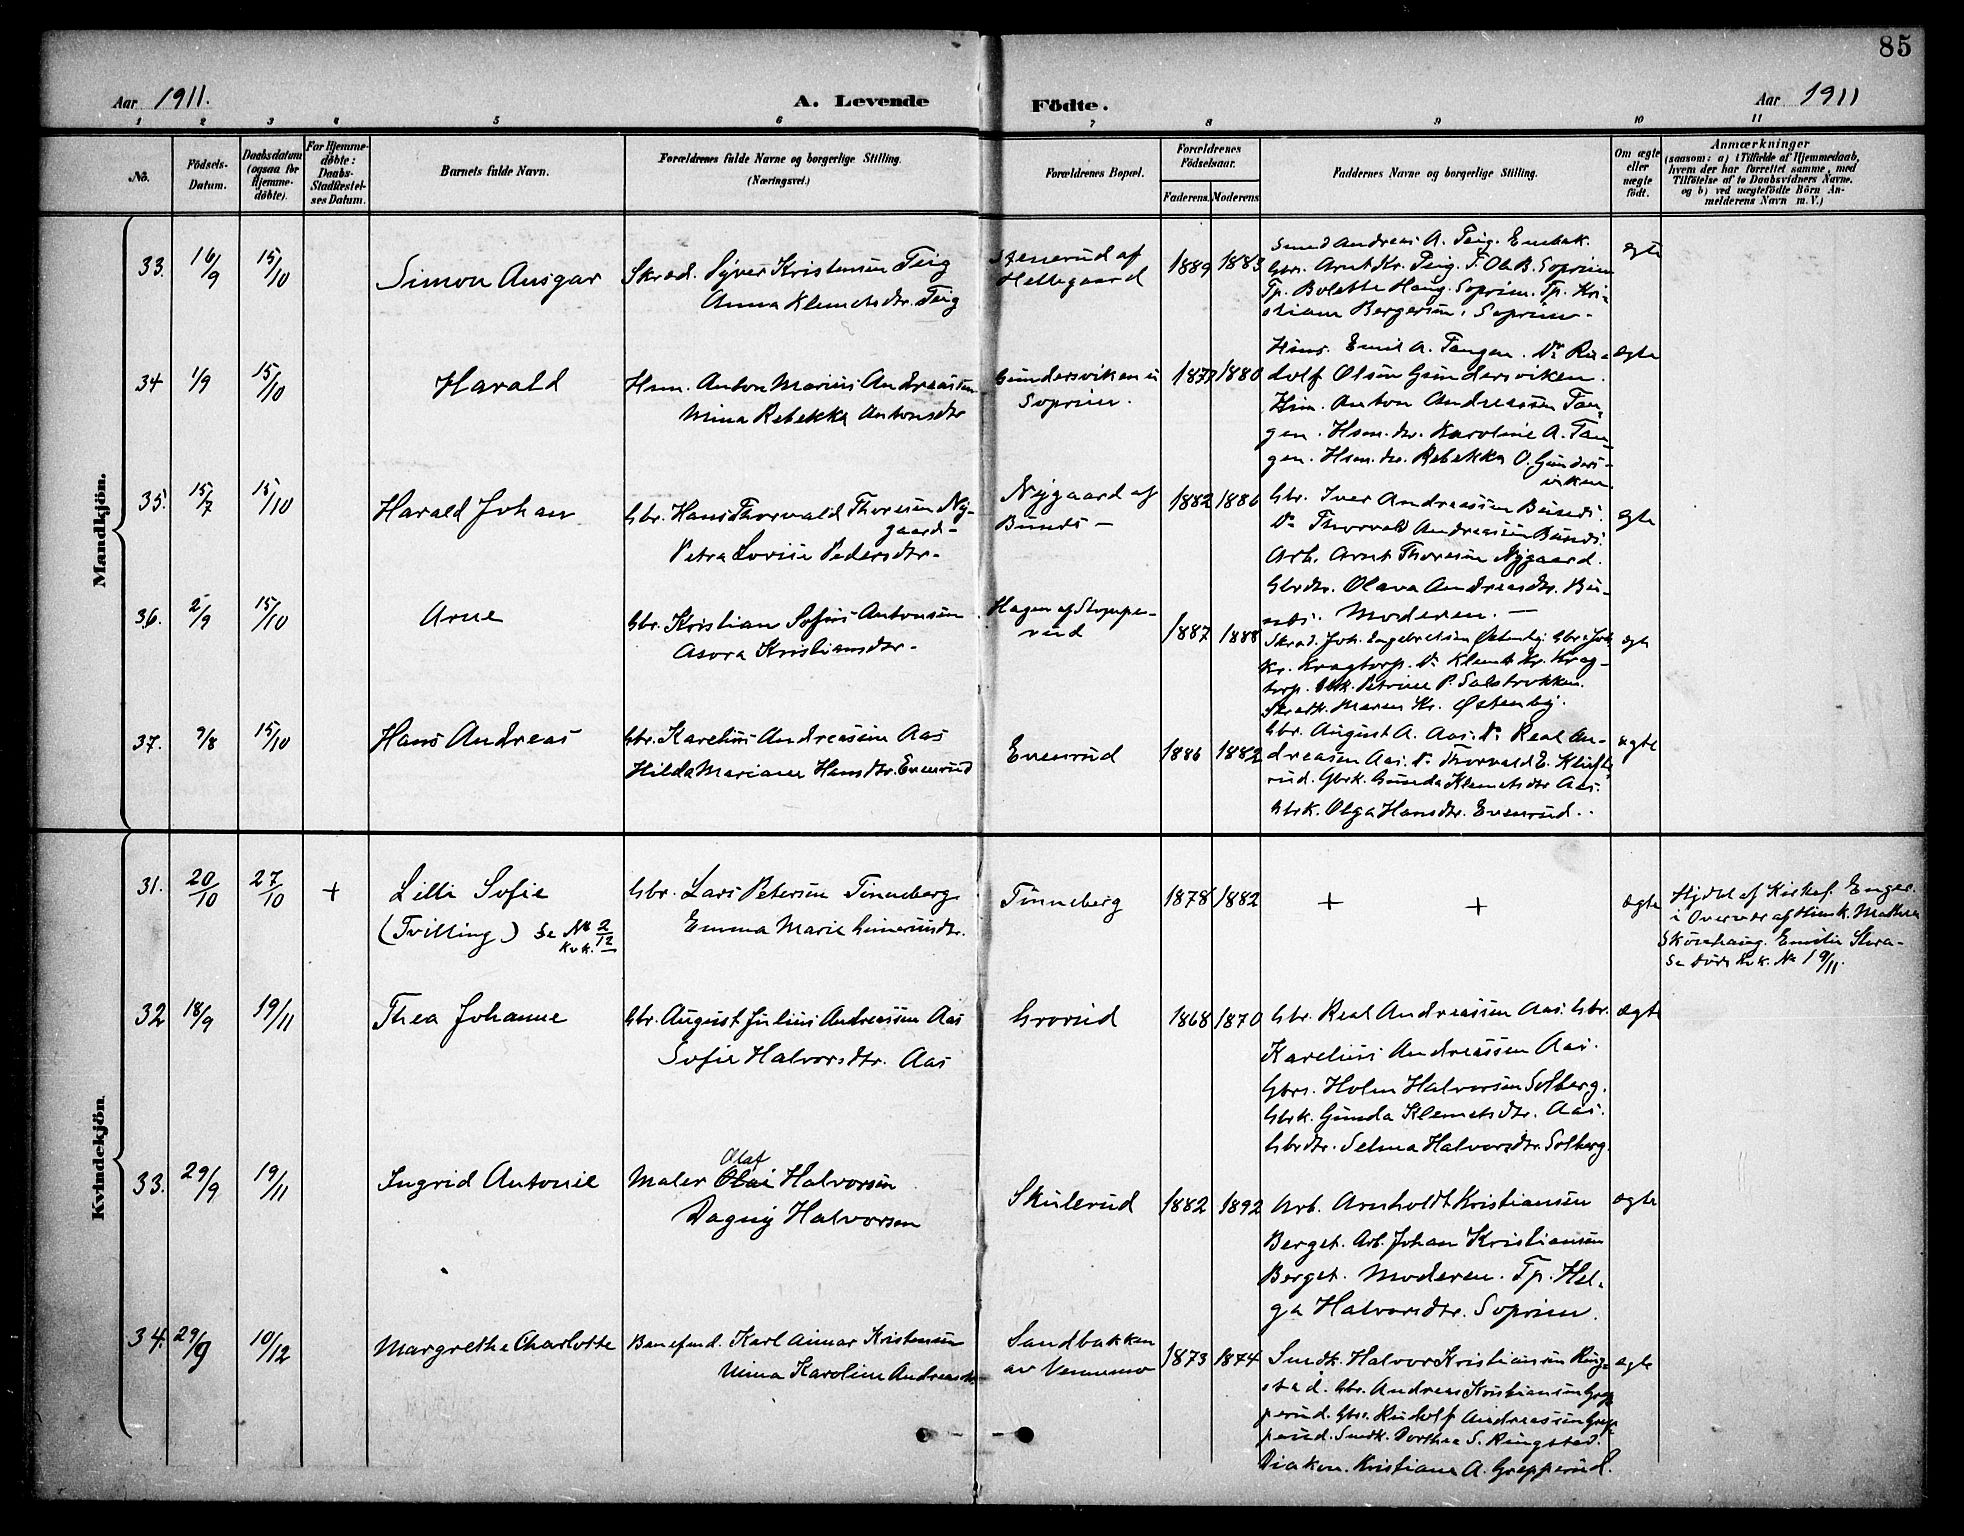 85
Aar 1911.
A. Levende
Födte.
Aar 1911
1 2 3 4 5 6 7 8 9 10 11
No.
Födsels-
Datum.
Daabsdatum
(ogsaa for
Hjemme-
døbte).
For Hjemme-
døbte:
Daabs-
Stadfæstel-
ses Datum.
Barnets fulde Navn.
Forældrenes fulde Navne og borgerlige Stilling.
(Næringsvei.)
Forældrenes Bopæl.
Forældrenes
Födselsaar.
Faderens. Moderens.
Faddernes Navne og borgerlige Stilling.
Om ægte
eller
uægte
födt.
Anmærkninger
(saasom: a) i Tilfælde af Hjemmedaab,
hvem der har forrettet samme, med
Tilföielse af to Daabsvidners Navne.
og b) ved uægtefödte Börn An-
melderens Navn m.V.)
Mandkjön.
33. 16/9 15/10
Simon Ansgar
Skræd. Syver Kristensen Teig
Anna Klemetsdtr. Teig
Stenerud af
Hellegaard
1889 1883
Smed Andreas A. Teig. Enebak.
Gbr. Arnt Kr. Teig. T. Ole B. Soprim
Tp. Bolette Haug. Soprim. Tp. Kri-
stiane Bergersen, Soprim.
ægte
34 1/9 15/10
Harald
Hsm. Anton Marius Andreassen
Mina Rebekka Antonsdtr
Gundersviken u
Soprim.
1877 1880
Hsms. Emil A. Tangen. Do Ru-
dolf Olsen Gundersviken.
Hsm. Anton Andreassen Tan-
gen. Hsm. dtr. Karoline A. Tan-
gen. Hsm. dtr. Rebekka O. Gunders-
viken.
ægte
35. 15/7 15/10
Harald Johan
Gbr. Hans Thorvald Thoresen Ny-
gaard-
Petra Lovise Pedersdtr.
Nygaard af
Bunes -
1882 1886
Gbr. Iver Andreassen Bunes.
Do Thorvald Andreassen Bunes.
Arb. Arnt Thoresen Nygaard.
Gbrdtr. Olava Andreasdtr. Bu-
nes. Moderen. —
ægte
36. 2/9 15/10
Arne
Gbr. Kristian Sofus Antonsen
Asora Kristiansdtr.
Hagen af Stoppe-
rud
1887 1888
Skræd. Joh. Engebretsen Østenby. Gbr. Joh.
Kr. Kragtorp. Do Klemet Kr. Krag-
torp. Petrine P. Solstrukken.
Skrædk. Maren Kr. Østenby.
ægte
37. 9/8 15/10
Hans Andreas
Gbr. Karelius Andreassen Aas
Hilda Mariane Hansdtr. Evenrud
Evenrud
1886 1882
Gbr. August A. Aas. Do Real An-
dreasen Aas. Do Thorvald E. Klufte-
rud. Gbrk. Gunda Klemetsdtr Aas.
Gbrk. Olga Hansdtr. Evenrud.
ægte
Kvindekjön.
31. 20/10 27/10 +
Lilli Sofie
(Tvilling) se No 2/12
Kvk.
Gbr. Lars Petersen Tinneberg
Emma Marie
Tinneberg
1878 1882
+ +
ægte
Hjdbt af Kirkes. Enger.
i Overvær af Hsmk. Mathea
Skönhaug. Emilie
Se döde kvk. No 19/11.
32 18/9 19/11
Thea Johanne
Gbr. August Julius Andreassen Aas
Sofie Halvorsdtr. Aas
Grorud
1868 1870
Gbr. Real Andreassen Aas. Gbr.
Karelius Andreassen Aas.
Gbrs. Holm Halvorsen Solberg.
Gbrk. Gunda Klemetsdtr. Aas.
Gbrdtr. Selma Halvorsdtr. Solberg.
ægte
33. 29/9 19/11
Ingrid Antonie
Olaf
Maler Olai Halvorsen
Dagny Halvorsen
Skulerud
1882 1892
Arb. Arnholdt Kristiansen
Berget. Arb. Johan Kristiansen
Berget. Moderen. Tp. Hel-
ga Halvorsdtr. Soprim.
ægte
34. 29/9 10/12
Margrethe Charlotte
Banefmd. Karl Aimar Kristensen
Mina Karoline Andreasdtr
Sandbakken
av Vennemo
1873 1874
Smdk. Halvor Kristiansen Ring-
stad. Gbr. Andreas Kristiansen Grep-
perud. Gbs. Rudolf Andreassen Grep-
perud. Smdk. Dorthea S. Ringstad.
Diakon. Kristiane A. Grepperud.
ægte